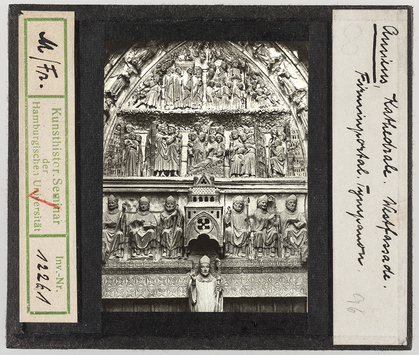 M/Fr.
Kunsthistor. Seminar
der
Hamburgischen Universität
Inv.-Nr.
12261
Amiens, Kathedrale. Westfassade.
Firminportal. Tympanon.
96